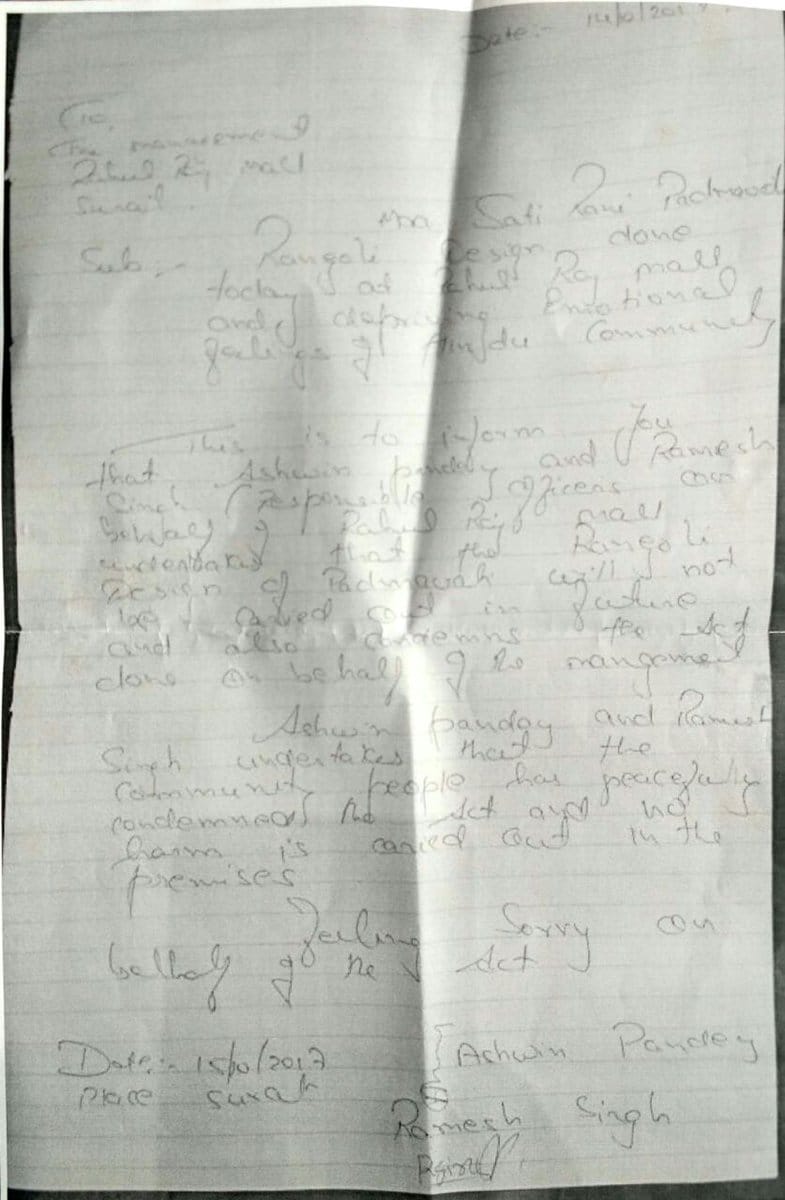 Date:- 14/10/2017
To,
The management
Rahul Raj mall
Surat.
Sati Rani Padmavati
Sub:- Rangoli Design done
today at Rahul Raj mall
and depriving Emotional
feelings of Hindu Community
This is to inform you
that Ashwin panday and Ramesh
Singh (responsible officers on
behalf of Rahul Raj mall
undertakes that the Rangoli
Design of Padmavati will not
be carried out in future
and also condemns the Act
done on behalf of the mangement
Ashwin panday and Ramesh
Singh undertakes that the
Community people has peacefully
condemned the Act and no
harm is carried out in the
premises
Feeling Sorry on
behalf of the Act
Date:- 15/10/2017
Place Surat
Ashwin Pandey
Ramesh Singh